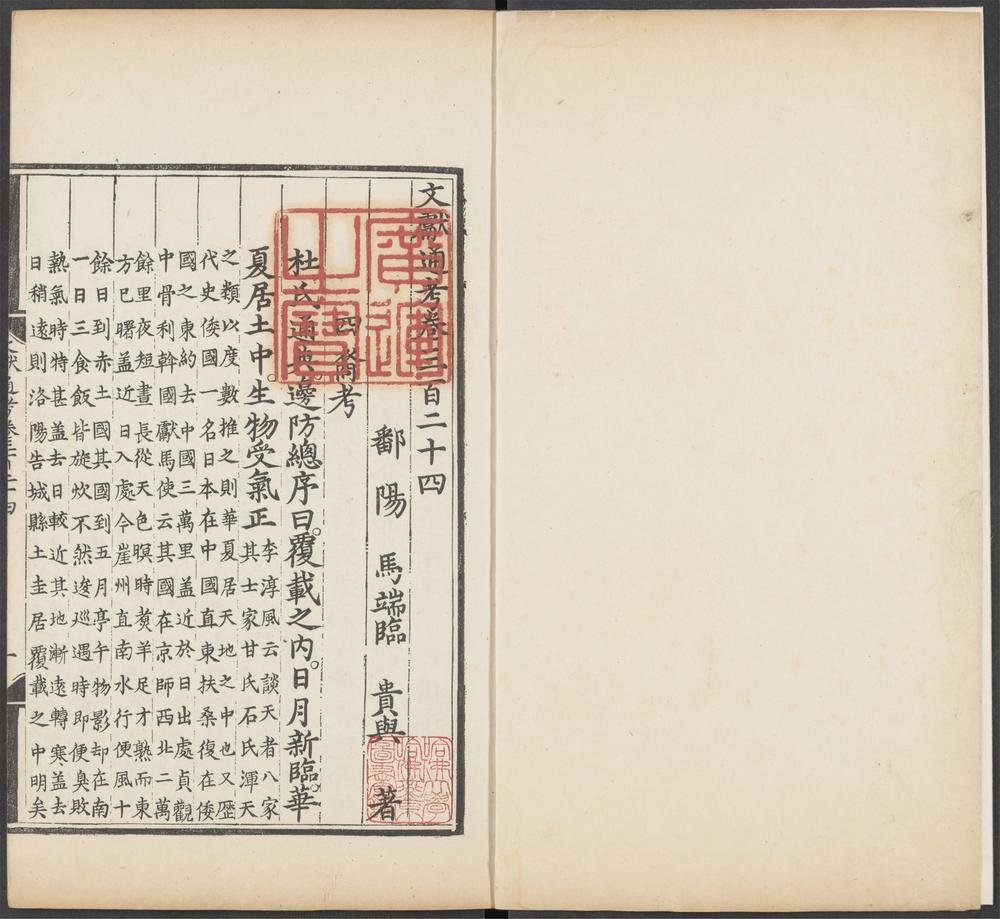 文獻通考卷三百二十四
鄱陽馬端臨貴與著
四裔考
杜氏通典。邊防總序曰。覆載之内。日月新臨。華
夏居土中。生物受氣正
李淳風云談天者八家
其士家甘氏石氏渾天
之類以度數推之則華夏居天地之中也又歷
代史倭國一名日本在中國直東扶桑復在倭
國之東約去中國三萬里盖近於日出處貞觀
中骨利幹國獻馬使云其國在京師西北二萬
餘里夜短晝長從天色暝時煑羊足才熟而東
方已曙盖近日入處今崖州直南水行便風十
餘日到赤土國其國到五月亭午物影却在南
一日三食飯皆旋炊不然逡巡過時即便臭敗
熱氣時特甚盖去日較近其地漸遠轉寒盖去
日稍遠則洛陽告城縣土圭居覆載之中明矣
廣運之寶